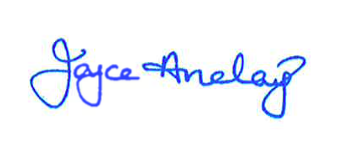 Joyce Anelay